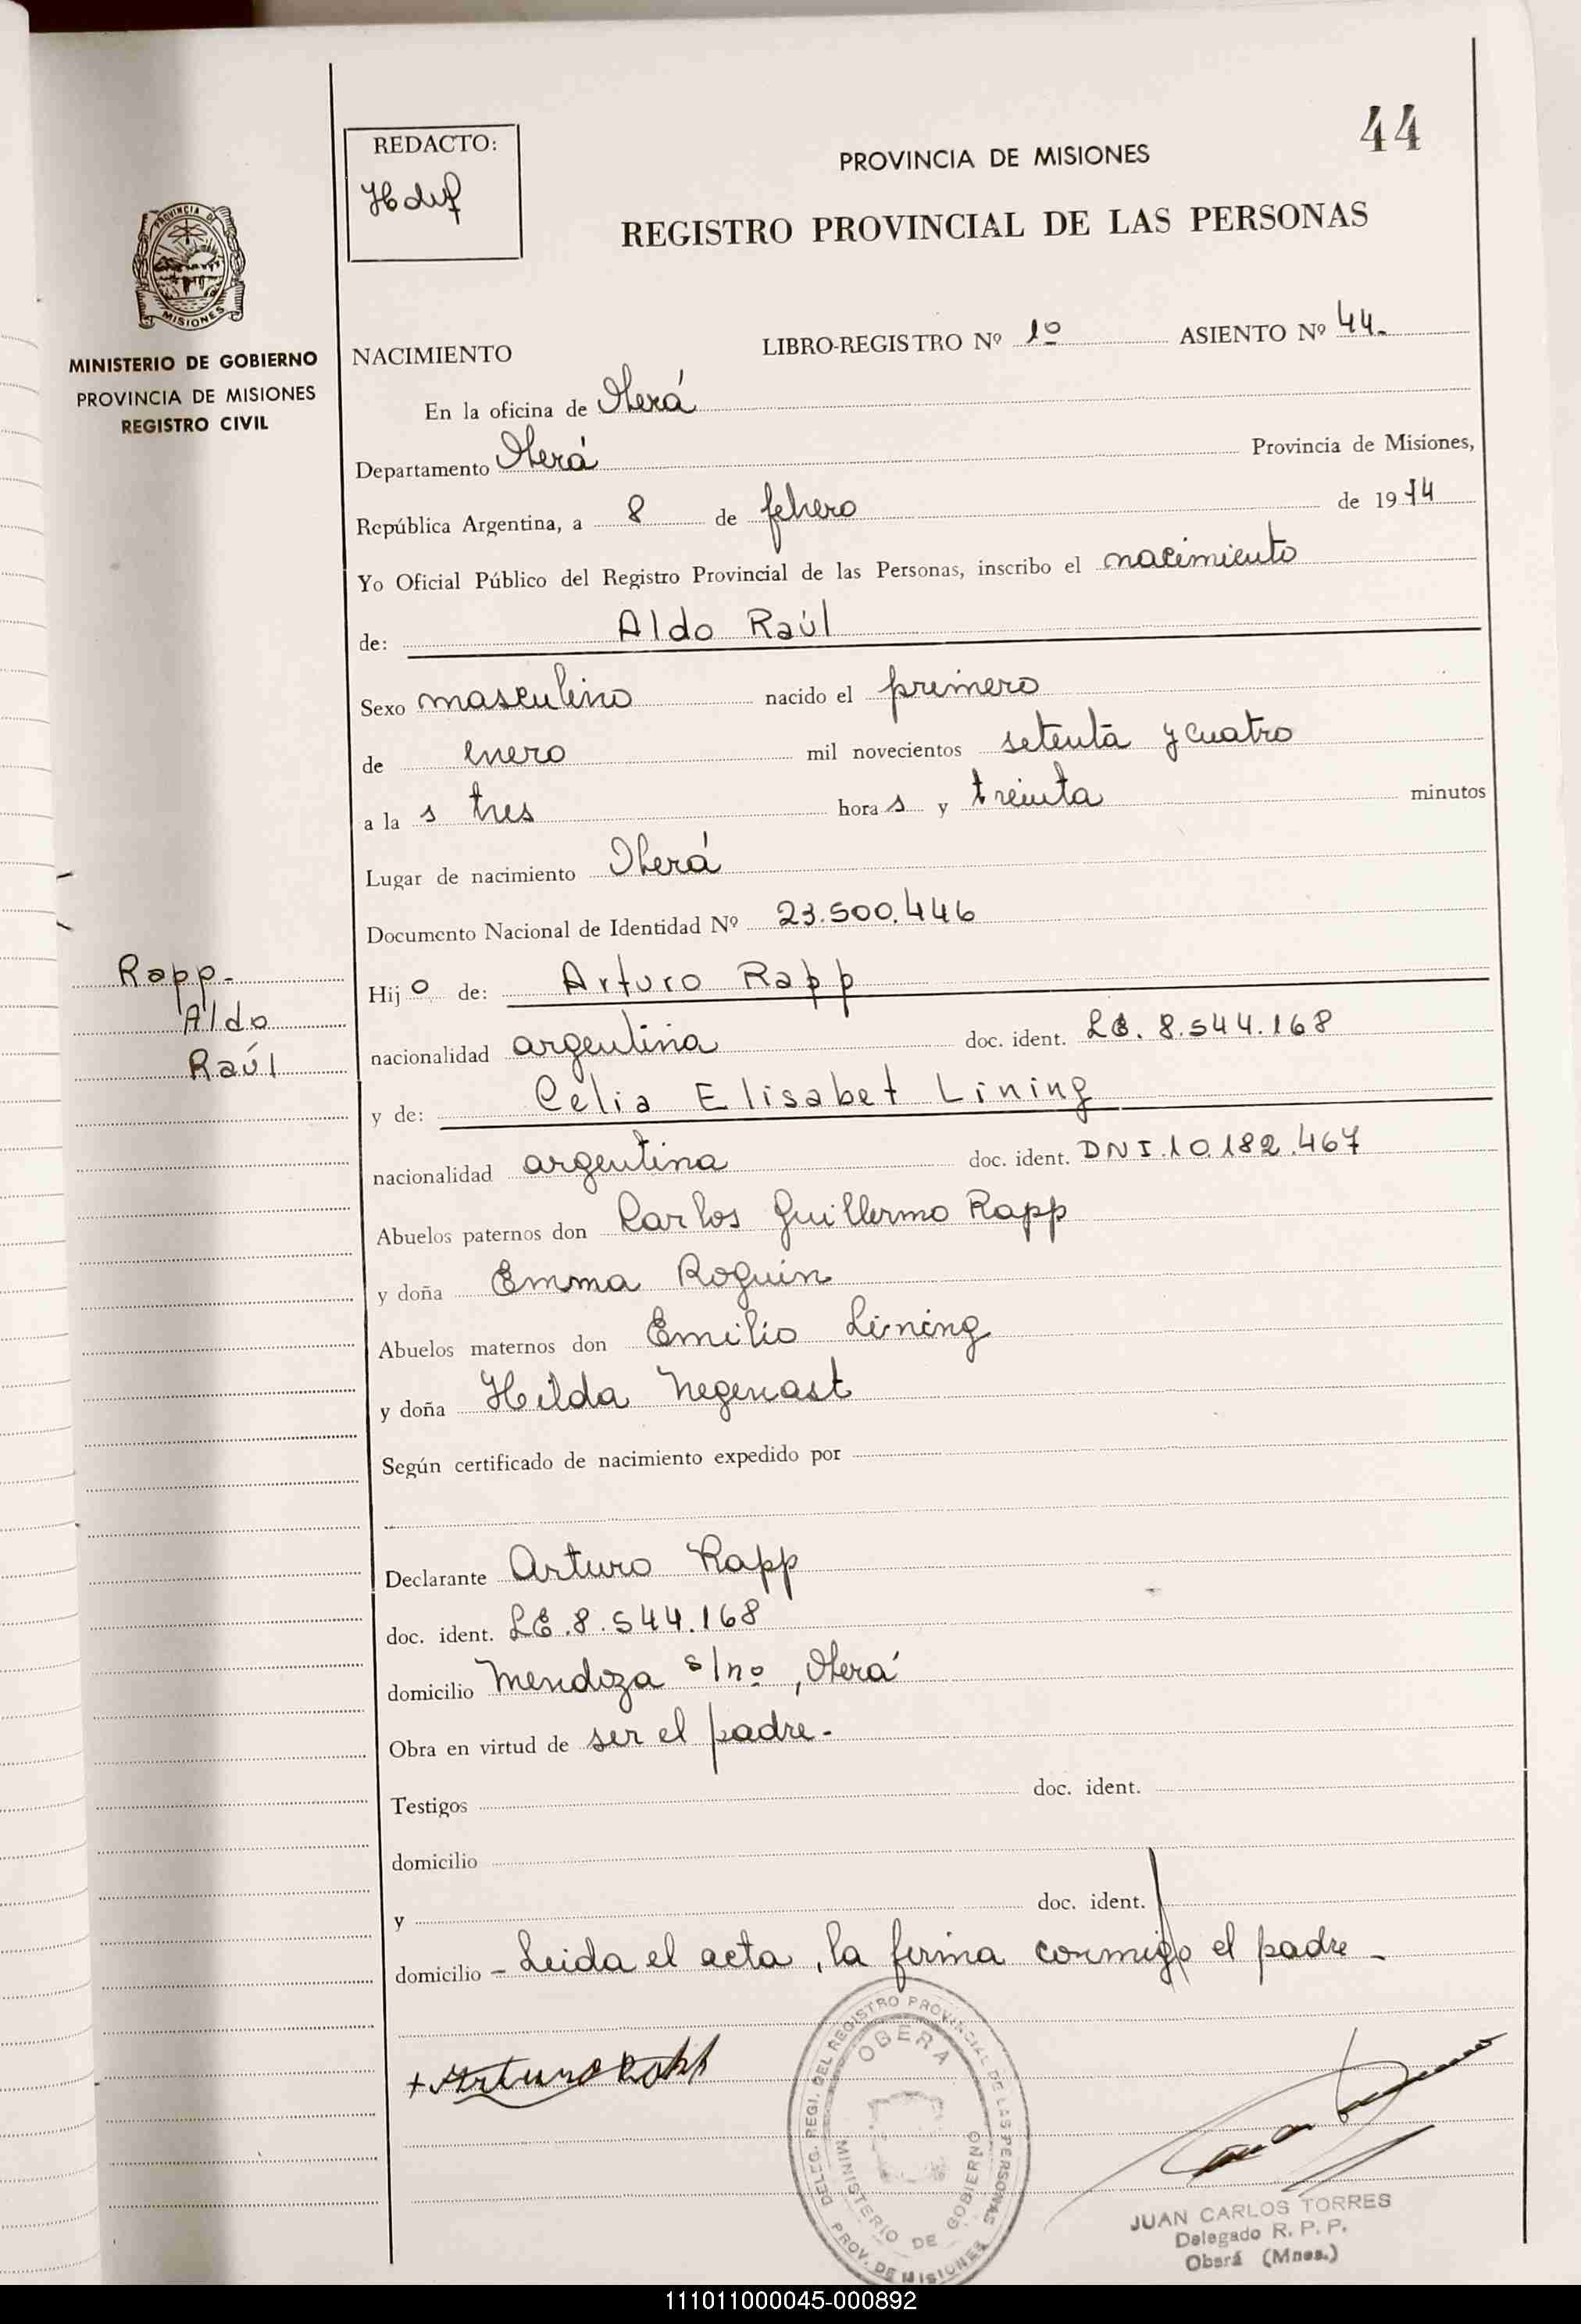 44
REDACTO:
PROVINCIA DE MISIONES
REGISTRO PROVINCIAL DE LAS PERSONAS
PROVINCIA DE
MISIONES
MINISTERIO DE GOBIERNO
PROVINCIA DE MISIONES
REGISTRO CIVIL
NACIMIENTO LIBRO-REGISTRO Nº 1º ASIENTO Nº 44.
En la oficina de Oberá
Departamento Oberá Provincia de Misiones,
República Argentina, a 8 de febrero de 1974
Yo Oficial Público del Registro Provincial de las Personas, inscribo el nacimiento
de: Aldo Raúl
Sexo masculino nacido el primero
de enero mil novecientos setenta y cuatro
a la s tres hora s y treinta minutos
Lugar de nacimiento Oberá
Documento Nacional de Identidad Nº 23.500.446
Rapp-
Aldo
Raúl
Hij o de: Arturo Rapp
nacionalidad argentina doc. ident. LE. 8.544.168
y de: Celia Elisabet Lining
nacionalidad argentina doc. ident. DNI.10.182.467
Abuelos paternos don Carlos Guillermo Rapp
y doña Emma Roguin
Abuelos maternos don Emilio Lining
y doña Hilda Negenast
Según certificado de nacimiento expedido por
Declarante Arturo Rapp
doc. ident. LE.8.544.168
domicilio Mendoza s/nº, Oberá
Obra en virtud de ser el padre-
Testigos doc. ident.
domicilio
y doc. ident.
domicilio - Leida el acta, la firma conmigo el padre -
+ Arturo Rapp
DELEG. REGI. DEL REGISTRO PROVINCIAL DE LAS PERSONAS
OBERA
MINISTERIO DE GOBIERNO
PROV. DE MISIONES
JUAN CARLOS TORRES
Delegado R. P. P.
Oberá (Mnes.)
111011000045-000892